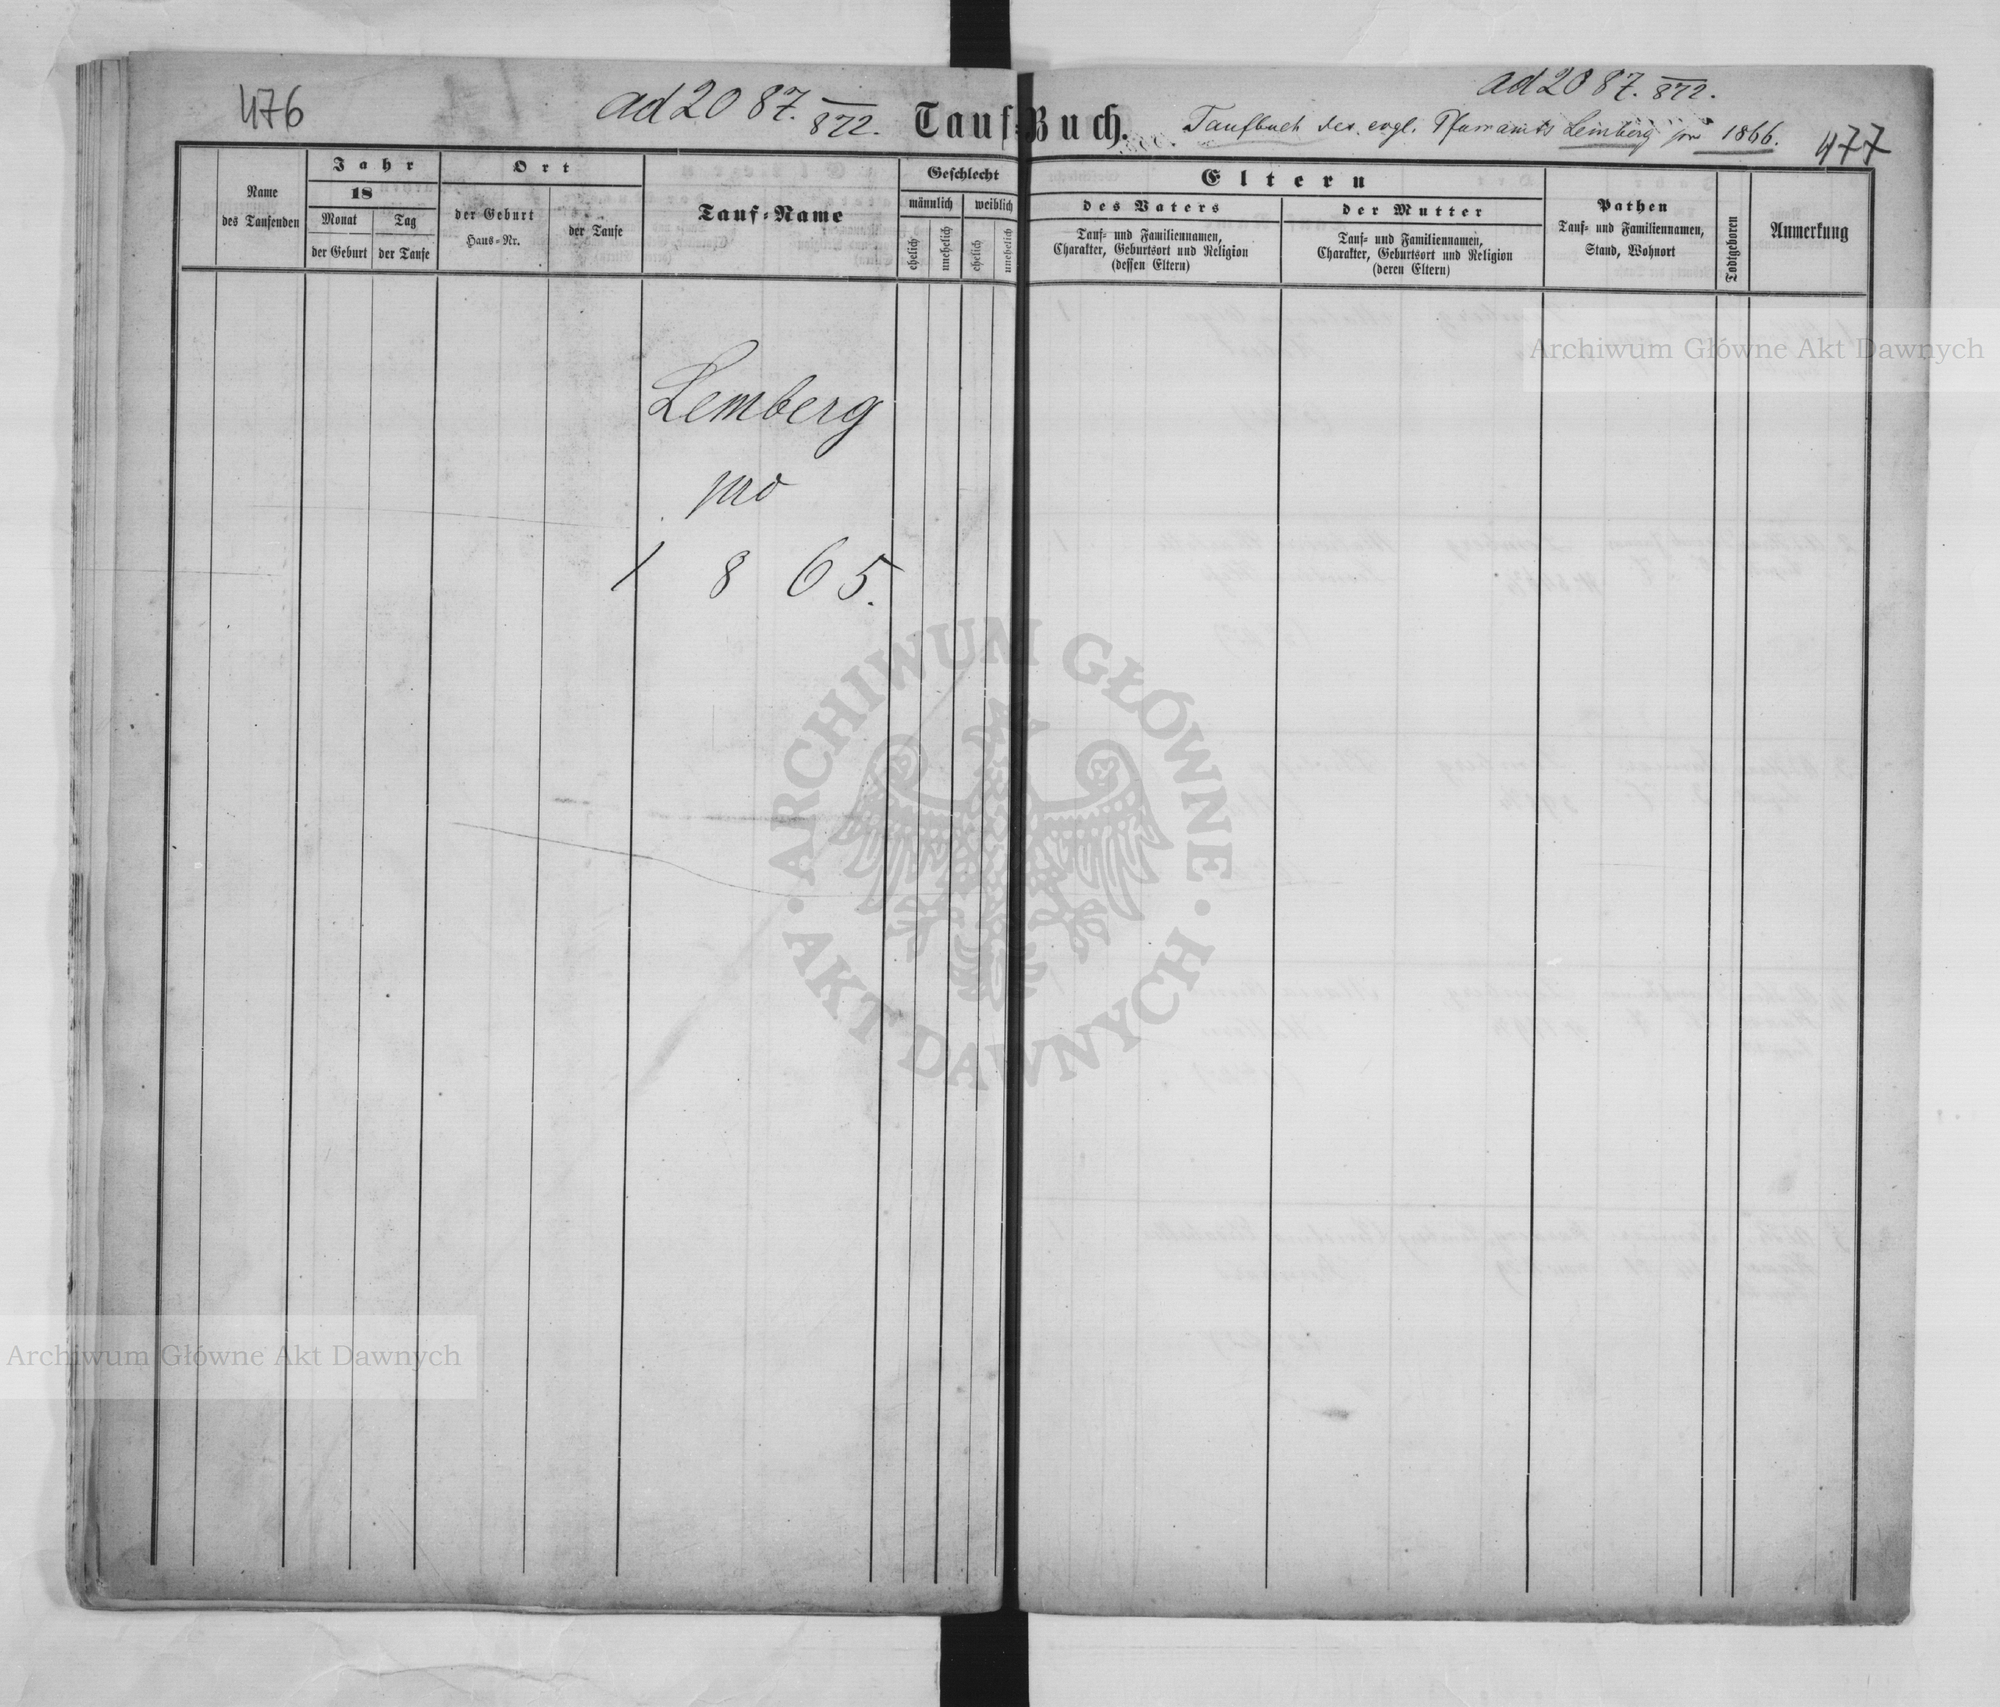 476
ad 2087.
872.
Tauf-Buch.
ad 2087. 872.
Taufbuch des evgl. Pfarramts Lemberg pro 1866.
477
Name
des Taufenden
Jahr
18
Monat
der Geburt
Tag
der Taufe
Ort
der Geburt
Haus-Nr.
der Taufe
Tauf-Name
Geschlecht
männlich
weiblich
ehelich
unehelich
ehelich
unehelich
Eltern
des Vaters
Tauf- und Familiennamen,
Charakter, Geburtsort und Religion
(dessen Eltern)
der Mutter
Tauf- und Familiennamen,
Charakter, Geburtsort und Religion
(deren Eltern)
Pathen
Tauf- und Familiennamen,
Stand, Wohnort
Todtgeboren
Anmerkung
Lemberg
pro
1865.
Archiwum Główne Akt Dawnych
ARCHIWUM GŁÓWNE
AKT DAWNYCH
Archiwum Główne Akt Dawnych